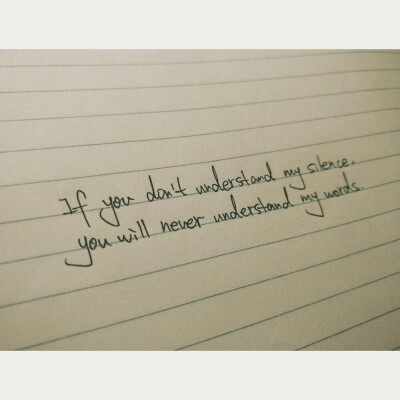 If you don't understand my silence.
you will never understand my words.